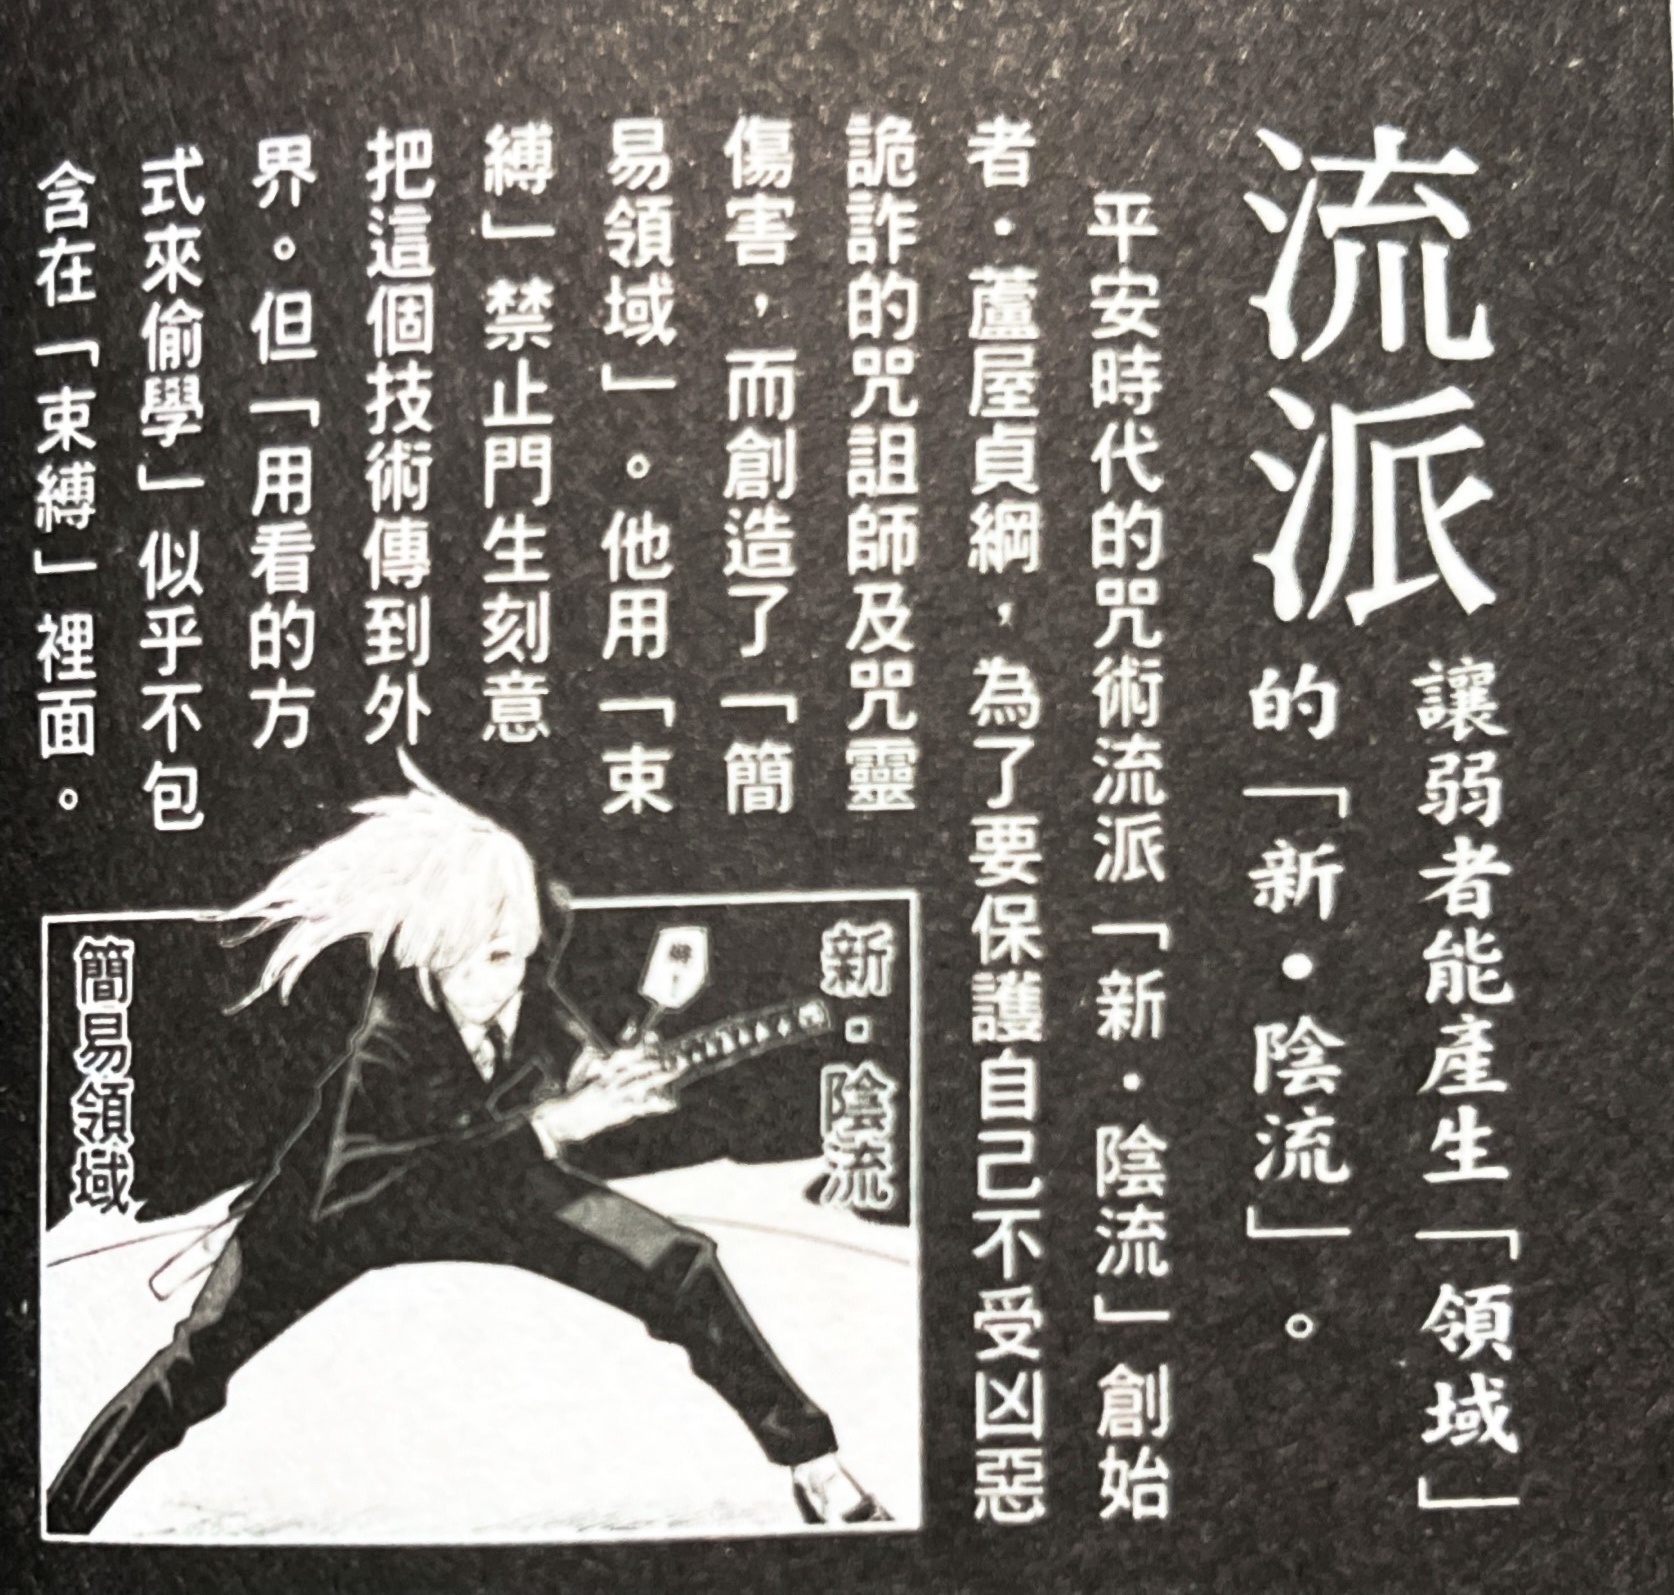 流派
讓弱者能產生「領域」
的「新・陰流」。
平安時代的咒術流派「新・陰流」創始
者・蘆屋貞綱，為了要保護自己不受凶惡
詭詐的咒詛師及咒靈
傷害，而創造了「簡
易領域」。他用「束
縛」禁止門生刻意
把這個技術傳到外
界。但「用看的方
式來偷學」似乎不包
含在「束縛」裡面。
新・陰流
簡易領域